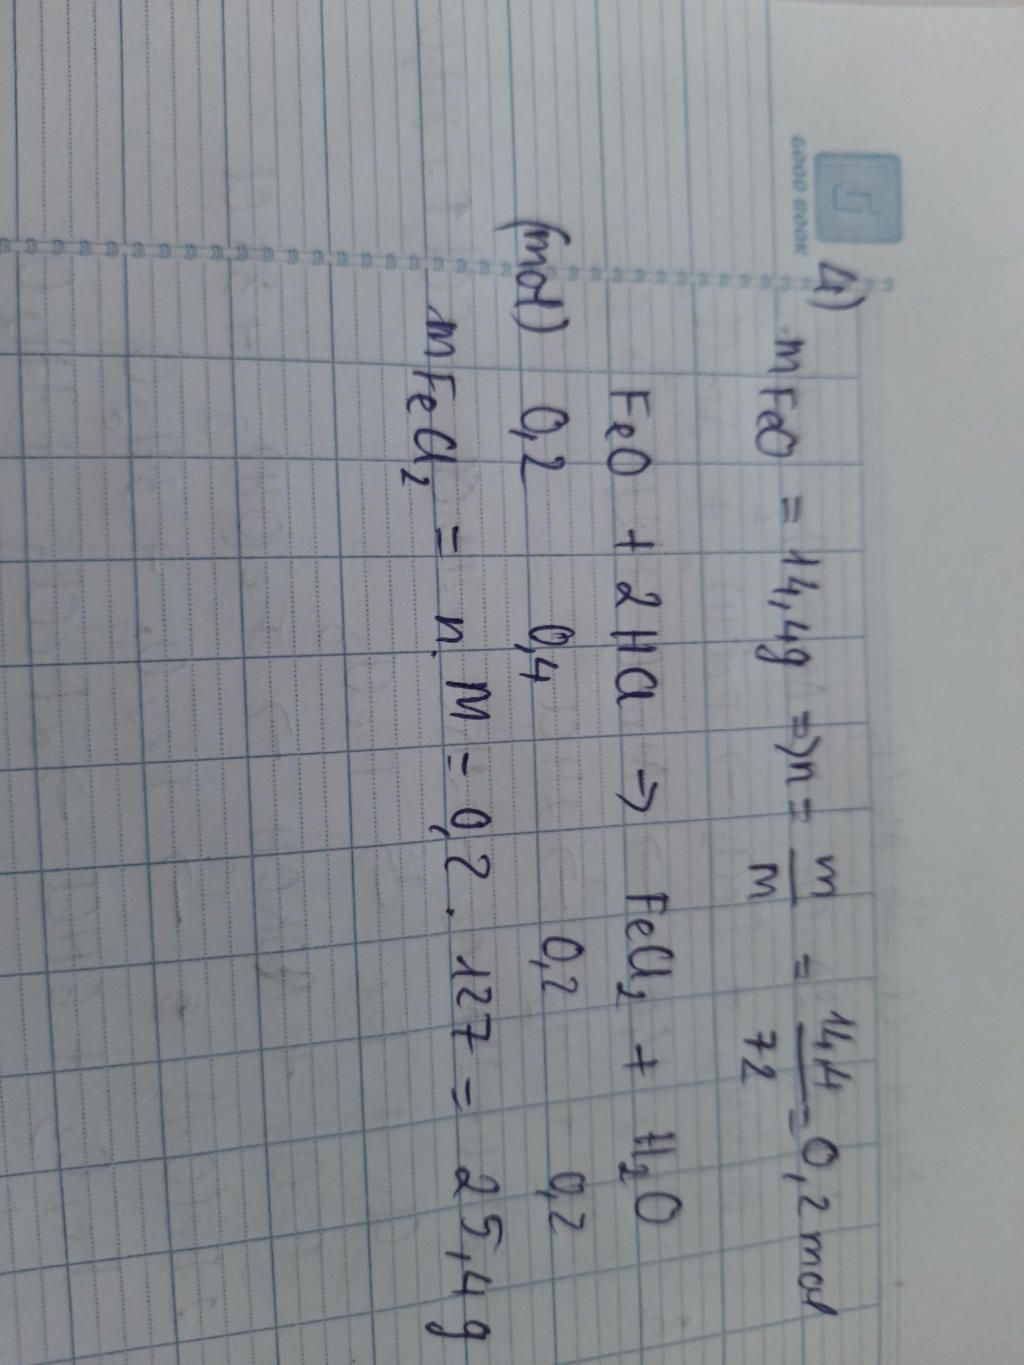 GOOD BOOK
4) mFeO = 14,4g => n = m/M = 14,4/72 = 0,2 mol
FeO + 2HCl → FeCl₂ + H₂O
(mol) 0,2 0,4 0,2 0,2
mFeCl₂ = n. M = 0,2 . 127 = 25,4g